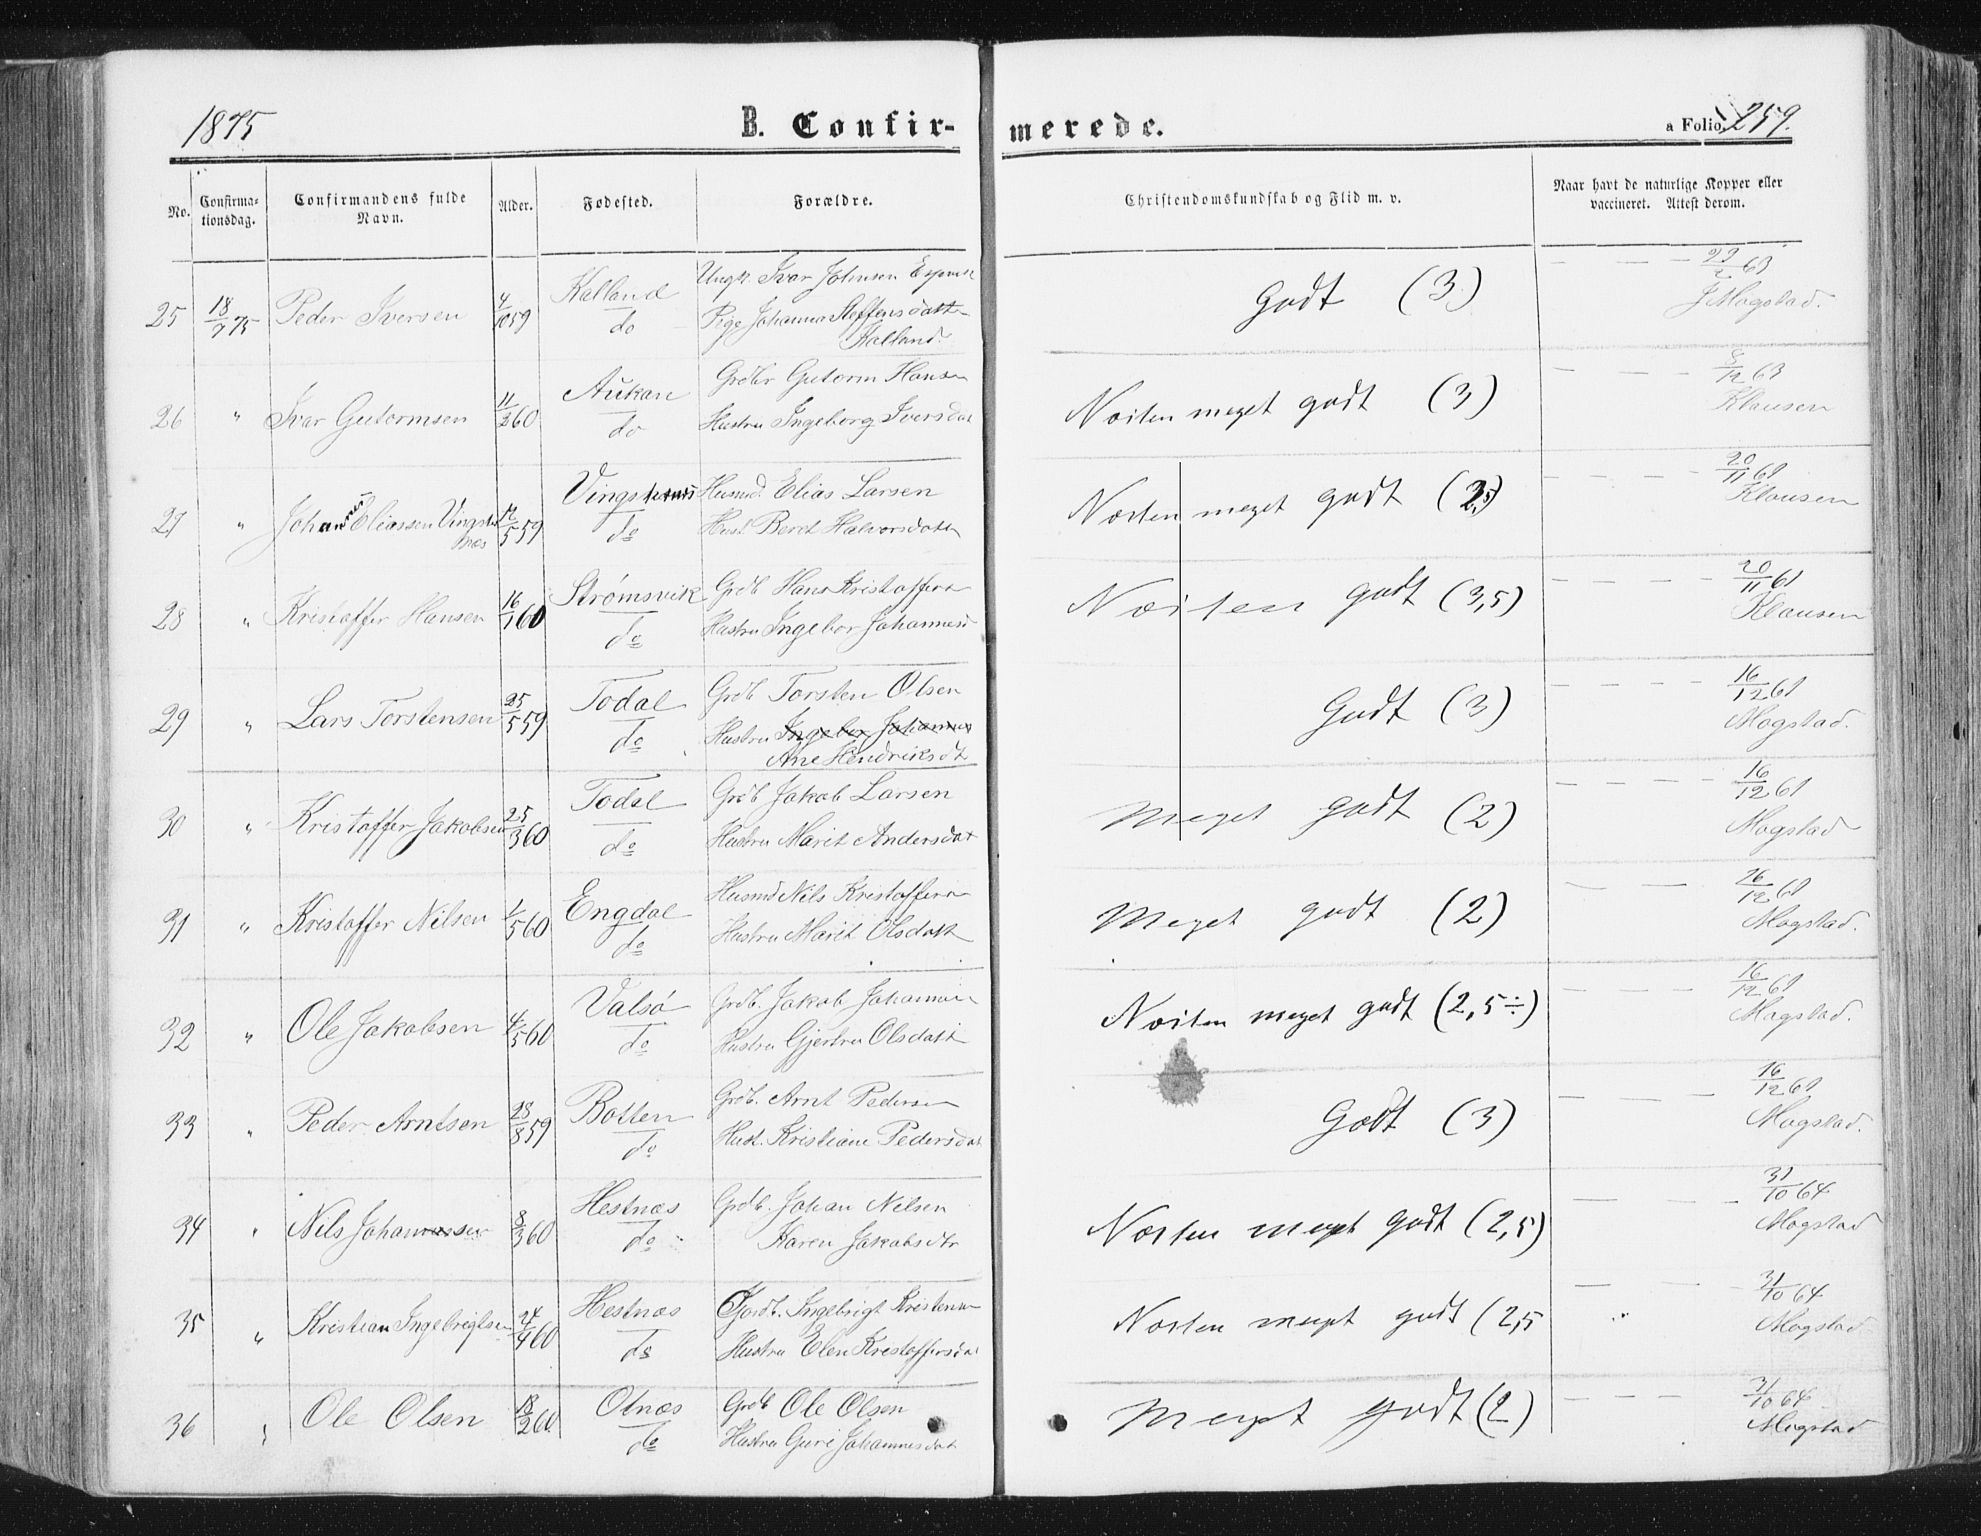 1875 B. Confir- merede. a Folio 259.
No. Confirma-tionsdag. Confirmandens fulde Navn. Alder. Fødested. Forældre. Christendomskundskab og Flid m. v. Naar havt de naturlige Kopper eller vaccineret. Attest derom.
25 18/7 75 Peder Iversen 4/10 59 Kalland do Ungk. Ivar Johnsen
Pige Johanna Steffensdatt
Halland. Godt (3) 22/2 63 J Mogstad.
26 " Ivar Gutormsen 11/2 60 Aukan do Grdbr Gutorm Hansen
Hustru Ingeborg Iversdat Næsten meget godt (3) 8/12 63 Klausen
27 " Johannes Eliassen Vingsternæs 12/5 59 Vingsternæs do Husmd. Elias Larsen
Hust Beret Halvorsdatt Næsten meget godt (2,5) 20/11 61 Klausen
28 " Kristoffer Hansen 16/1 60 Strømsvik do Grdb Hans Kristoffern
Hustru Ingebor Johannesd Næsten godt (3,5) 20/11 61 Klausen
29 " Lars Torstensen 25/5 59 Todal do Grdb Torsten Olsen
Hustru Ingebor Johannes
Ane Hendriksdt Godt (3) 16/12 61 Mogstad.
30 " Kristoffer Jakobsen 25/3 60 Todal do Grdb Jakob Larsen
Hustru Marit Andersdat Meget godt (2) 16/12 61 Mogstad
31 " Kristoffer Nilsen 1/5 60 Engdal do Husmd Nils Kristoffern
Hustru Marit Olsdatt Meget godt (2) 16/12 61 Mogstad.
32 " Ole Jakobsen 4/5 60 Valsø do Grdb. Jakob Johannesn
Hustru Gjertru Olsdatt Næsten meget godt (2,5÷) 16/12 61 Mogstad.
33 " Peder Arntsen 28/8 59 Botten do Grdb. Arnt Pedersen
Hust. Kristiane Pedersdat Godt (3) 16/12 61 Mogstad.
34 " Nils Johannessen 8/3 60 Hestnæs do Grdb. Johan Nilsen
Karen Jakobsdtr Næsten meget godt (2,5) 31/10 64 Mogstad
35 " Kristian Ingebrigtsen 24/4 60 Hestnæs do Gordb. Ingebrigt Kristensen
Hustru Elen Kristoffersdat Næsten meget godt (2,5 31/10 64 Mogstad
36 " Ole Olsen 18/2 60 Otnæs do Grdb Ole Olsen
Hustru Guri Johannesdat Meget godt (2) 31/10 64 Mogstad